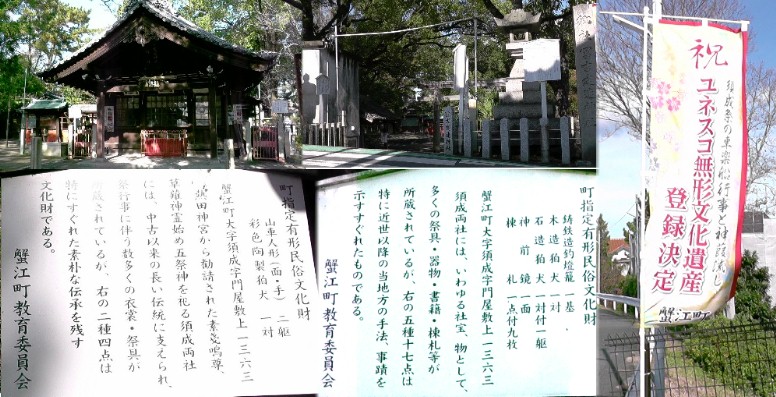 町指定有形民俗文化財
山車人形(面・手) 二躯
彩色陶製狛犬 一対
蟹江町大字須成字門屋敷上一三六三
熱田神宮から勧請された素戔嗚尊、
草薙神霊始め五祭神を祀る須成両社
には、中古以来の長い伝統に支えられ、
祭行事に伴う数多くの衣裳・祭具が
所蔵されているが、右の二種四点は
特にすぐれた素朴な伝承を残す
文化財である。
蟹江町教育委員会
町指定有形民俗文化財
鋳鉄造釣燈籠 一基
木造狛犬 一対
石造狛犬 一対付一躯
神前鏡 一面
棟札 一点付九枚
蟹江町大字須成字門屋敷上一三六三
須成両社には、いわゆる社宝、物として、
多くの祭具・器物・書籍・棟札等が
所蔵されているが、右の五種十七点は
特に近世以降の当地方の手法、事蹟を
示すすぐれたものである。
蟹江町教育委員会
祝
須成祭の車楽船行事と神葭流し
ユネスコ無形文化遺産
登録決定
蟹江町